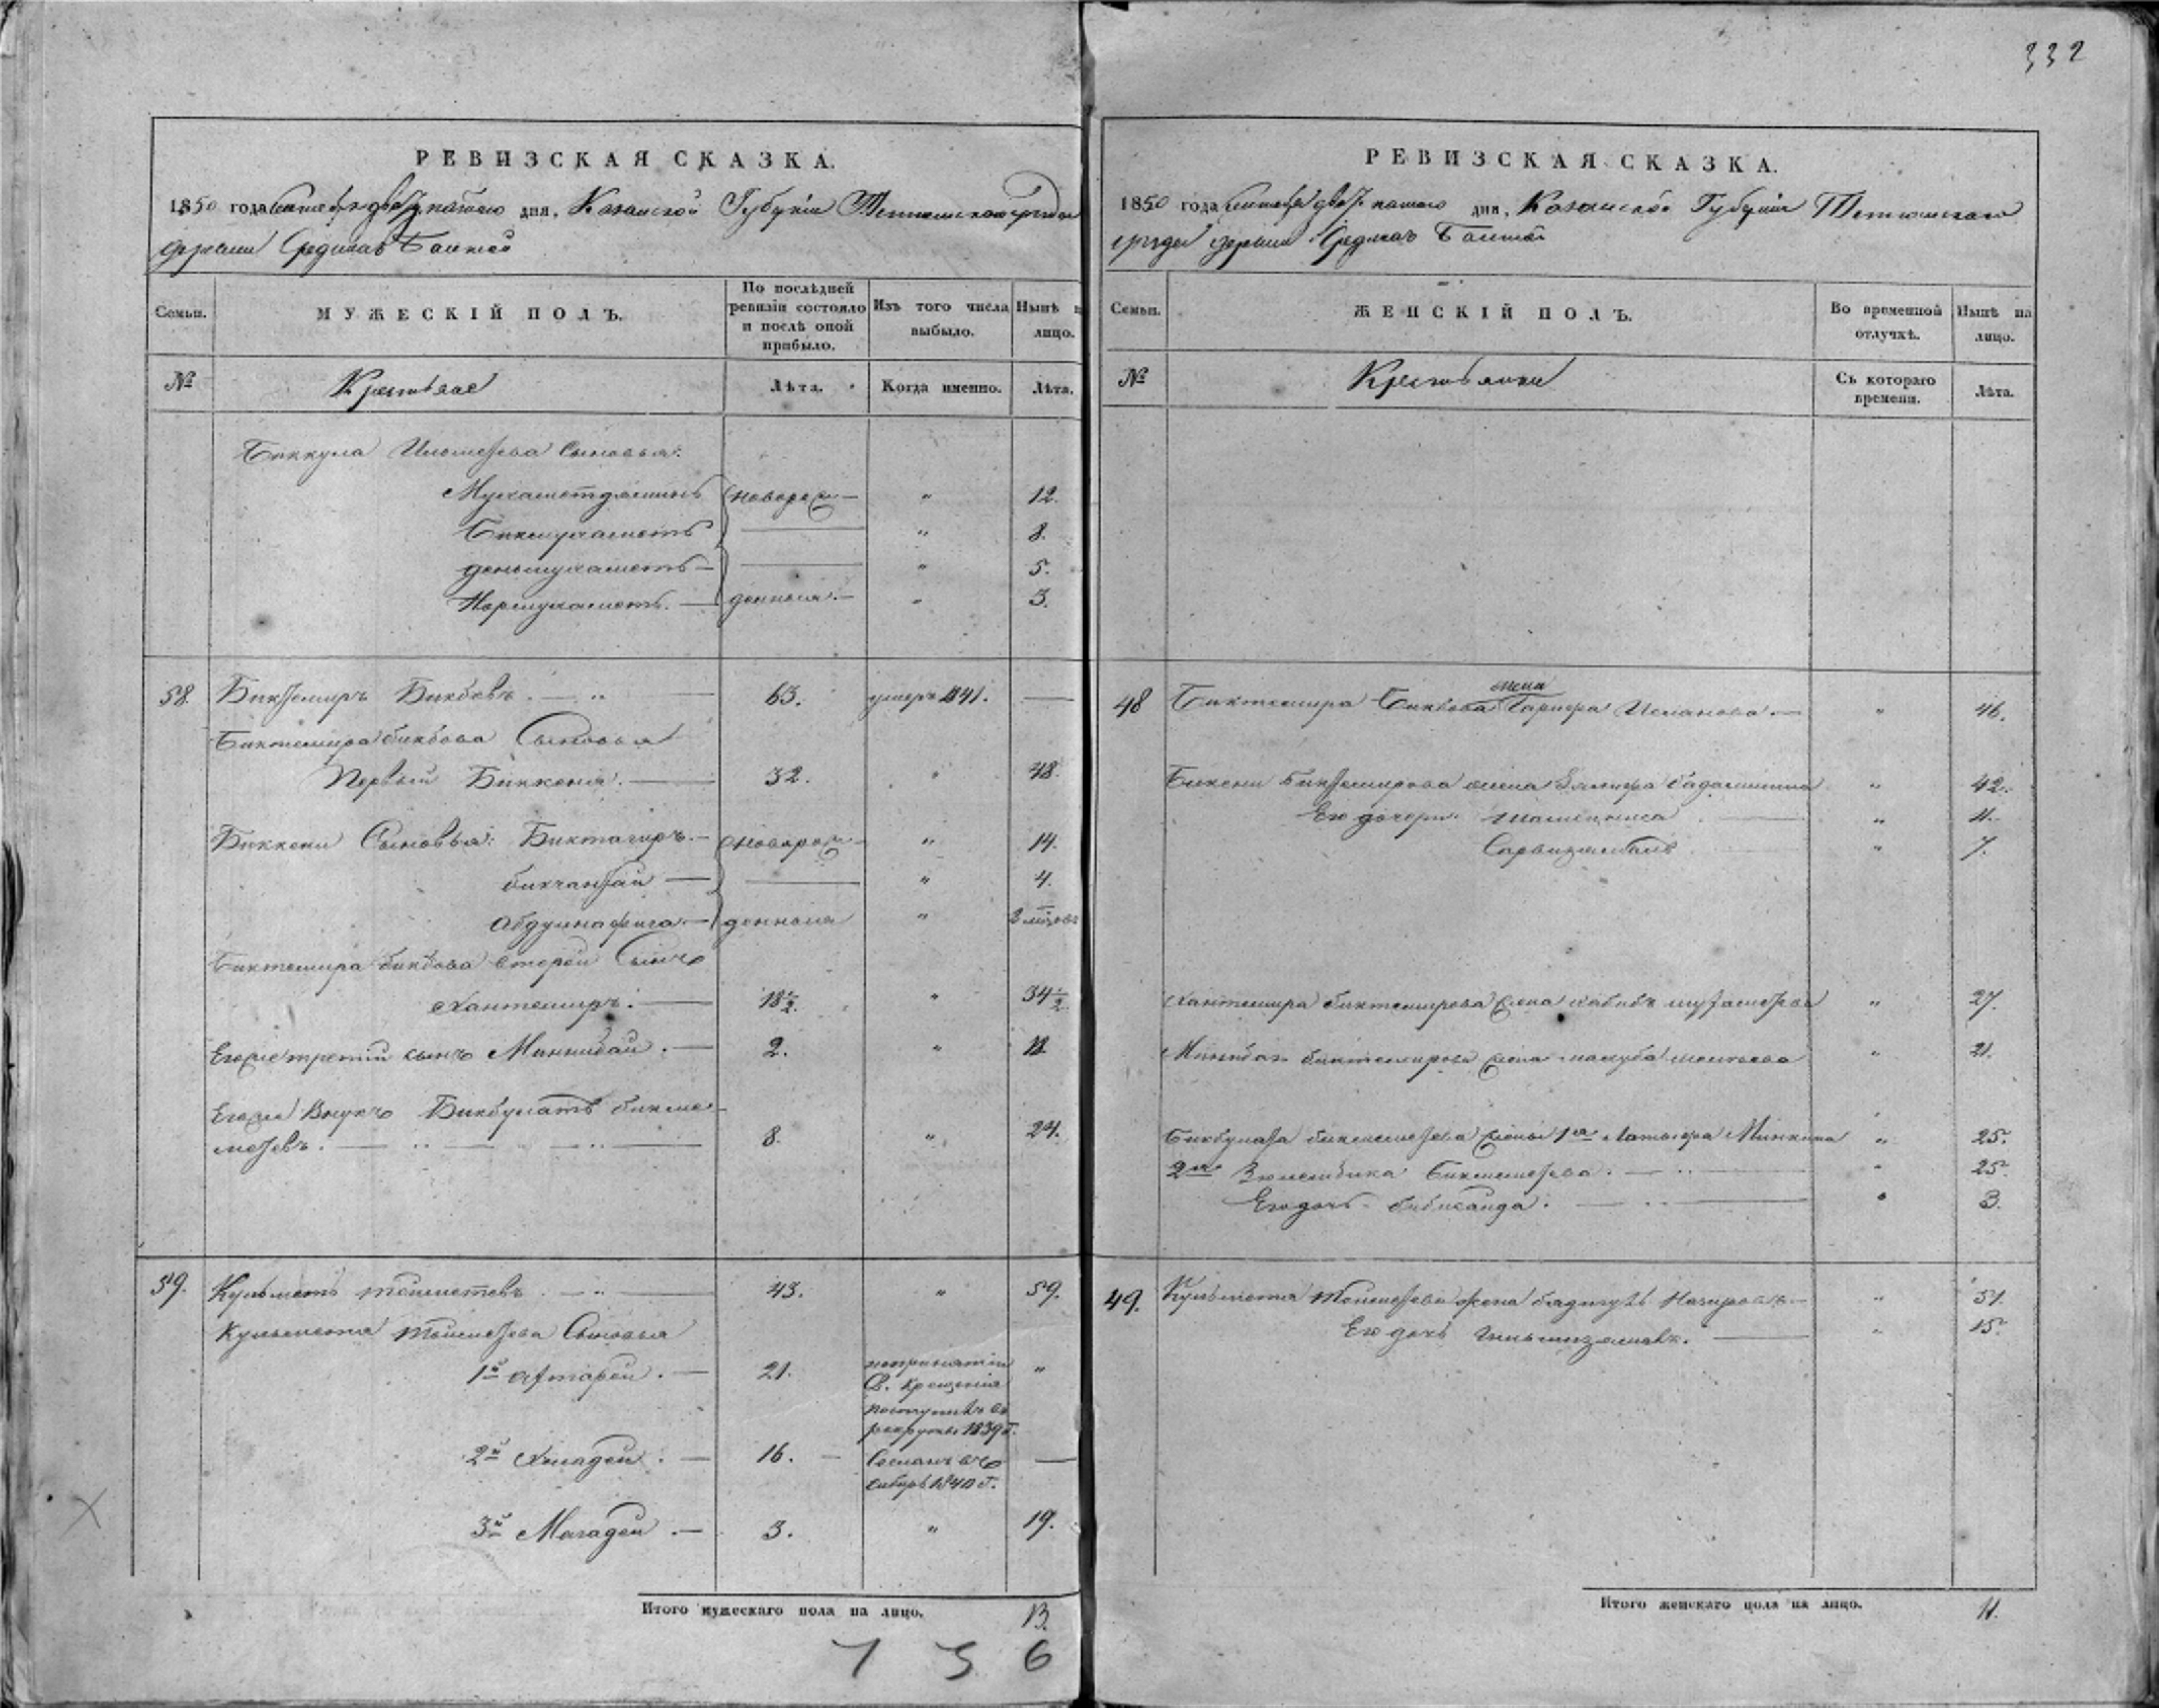 332
РЕВИЗСКАЯ СКАЗКА.
1850 года дня, Казанской Губерніи Тетюшскаго уѣзда
деревни Среднихъ Балтай
Семьи. МУЖЕСКІЙ ПОЛЪ. По послѣдней ревизіи состояло и послѣ оной прибыло. Изъ того числа выбыло. Нынѣ на лицо.
№ Крестьяне Лѣта. Когда именно. Лѣта.
Биккула Сыновья:
Мухаметдаминъ новорож— " 12.
Бикмухаметь " 8.
деньмухаметь — " 5.
Нормухаметь. — денныя. — " 3.
58. Биктемиръ Бикбовъ. — 63. умеръ 1841. —
Биктемира Бикбова Сыновья
Первый Биккеня. — 32. " 48.
Биккени Сыновья: Биктагиръ. — новорож— " 14.
бикчантай — " 4.
Абдулнафига — денныя "
Биктемира Бикбова вторый Сынъ
Хантемиръ. — 18 1/2. " 34 1/2.
Его же третій сынъ Миннибай. — 2. " 18
Его же Внукъ Бикбулатъ бикме-
метевъ. — 8. " 24.
59. Кульметь тойметевъ. — 43. " 59.
Кульметя тойметева Сыновья
1й — 21. попринятіи Св. Крещенія поступилъ въ рекруты 1839 г. "
2й Хмадей. — 16. — Сосланъ въ сибирь 1840 г. —
3й Магадей. — 3. " 19.
Итого мужескаго пола на лицо. 13.
7 5 6
РЕВИЗСКАЯ СКАЗКА.
1850 года дня, Казанской Губерніи Тетюшскаго
уѣзда деревни Среднихъ Балтай
Семьи. ЖЕНСКІЙ ПОЛЪ. Во временной отлучкѣ. Нынѣ на лицо.
№ Крестьянки Съ котораго времени. Лѣта.
48 Биктемира Бикбова жена Исланова. — " 46.
Бикени Биктемирова жена " 42.
Его дочери: " 11.
" 7.
Хантемира биктемирова жена " 27.
Минибая биктемирова жена " 21.
Бикбулата бикмеметева жены 1я " 25.
2я Бикмеметева. — " 25.
Его дочь бибисаида. — " 3.
49. Кульметя Тойметева жена Назирова — " 51.
Его дочь " 15.
Итого женскаго пола на лицо. 11.